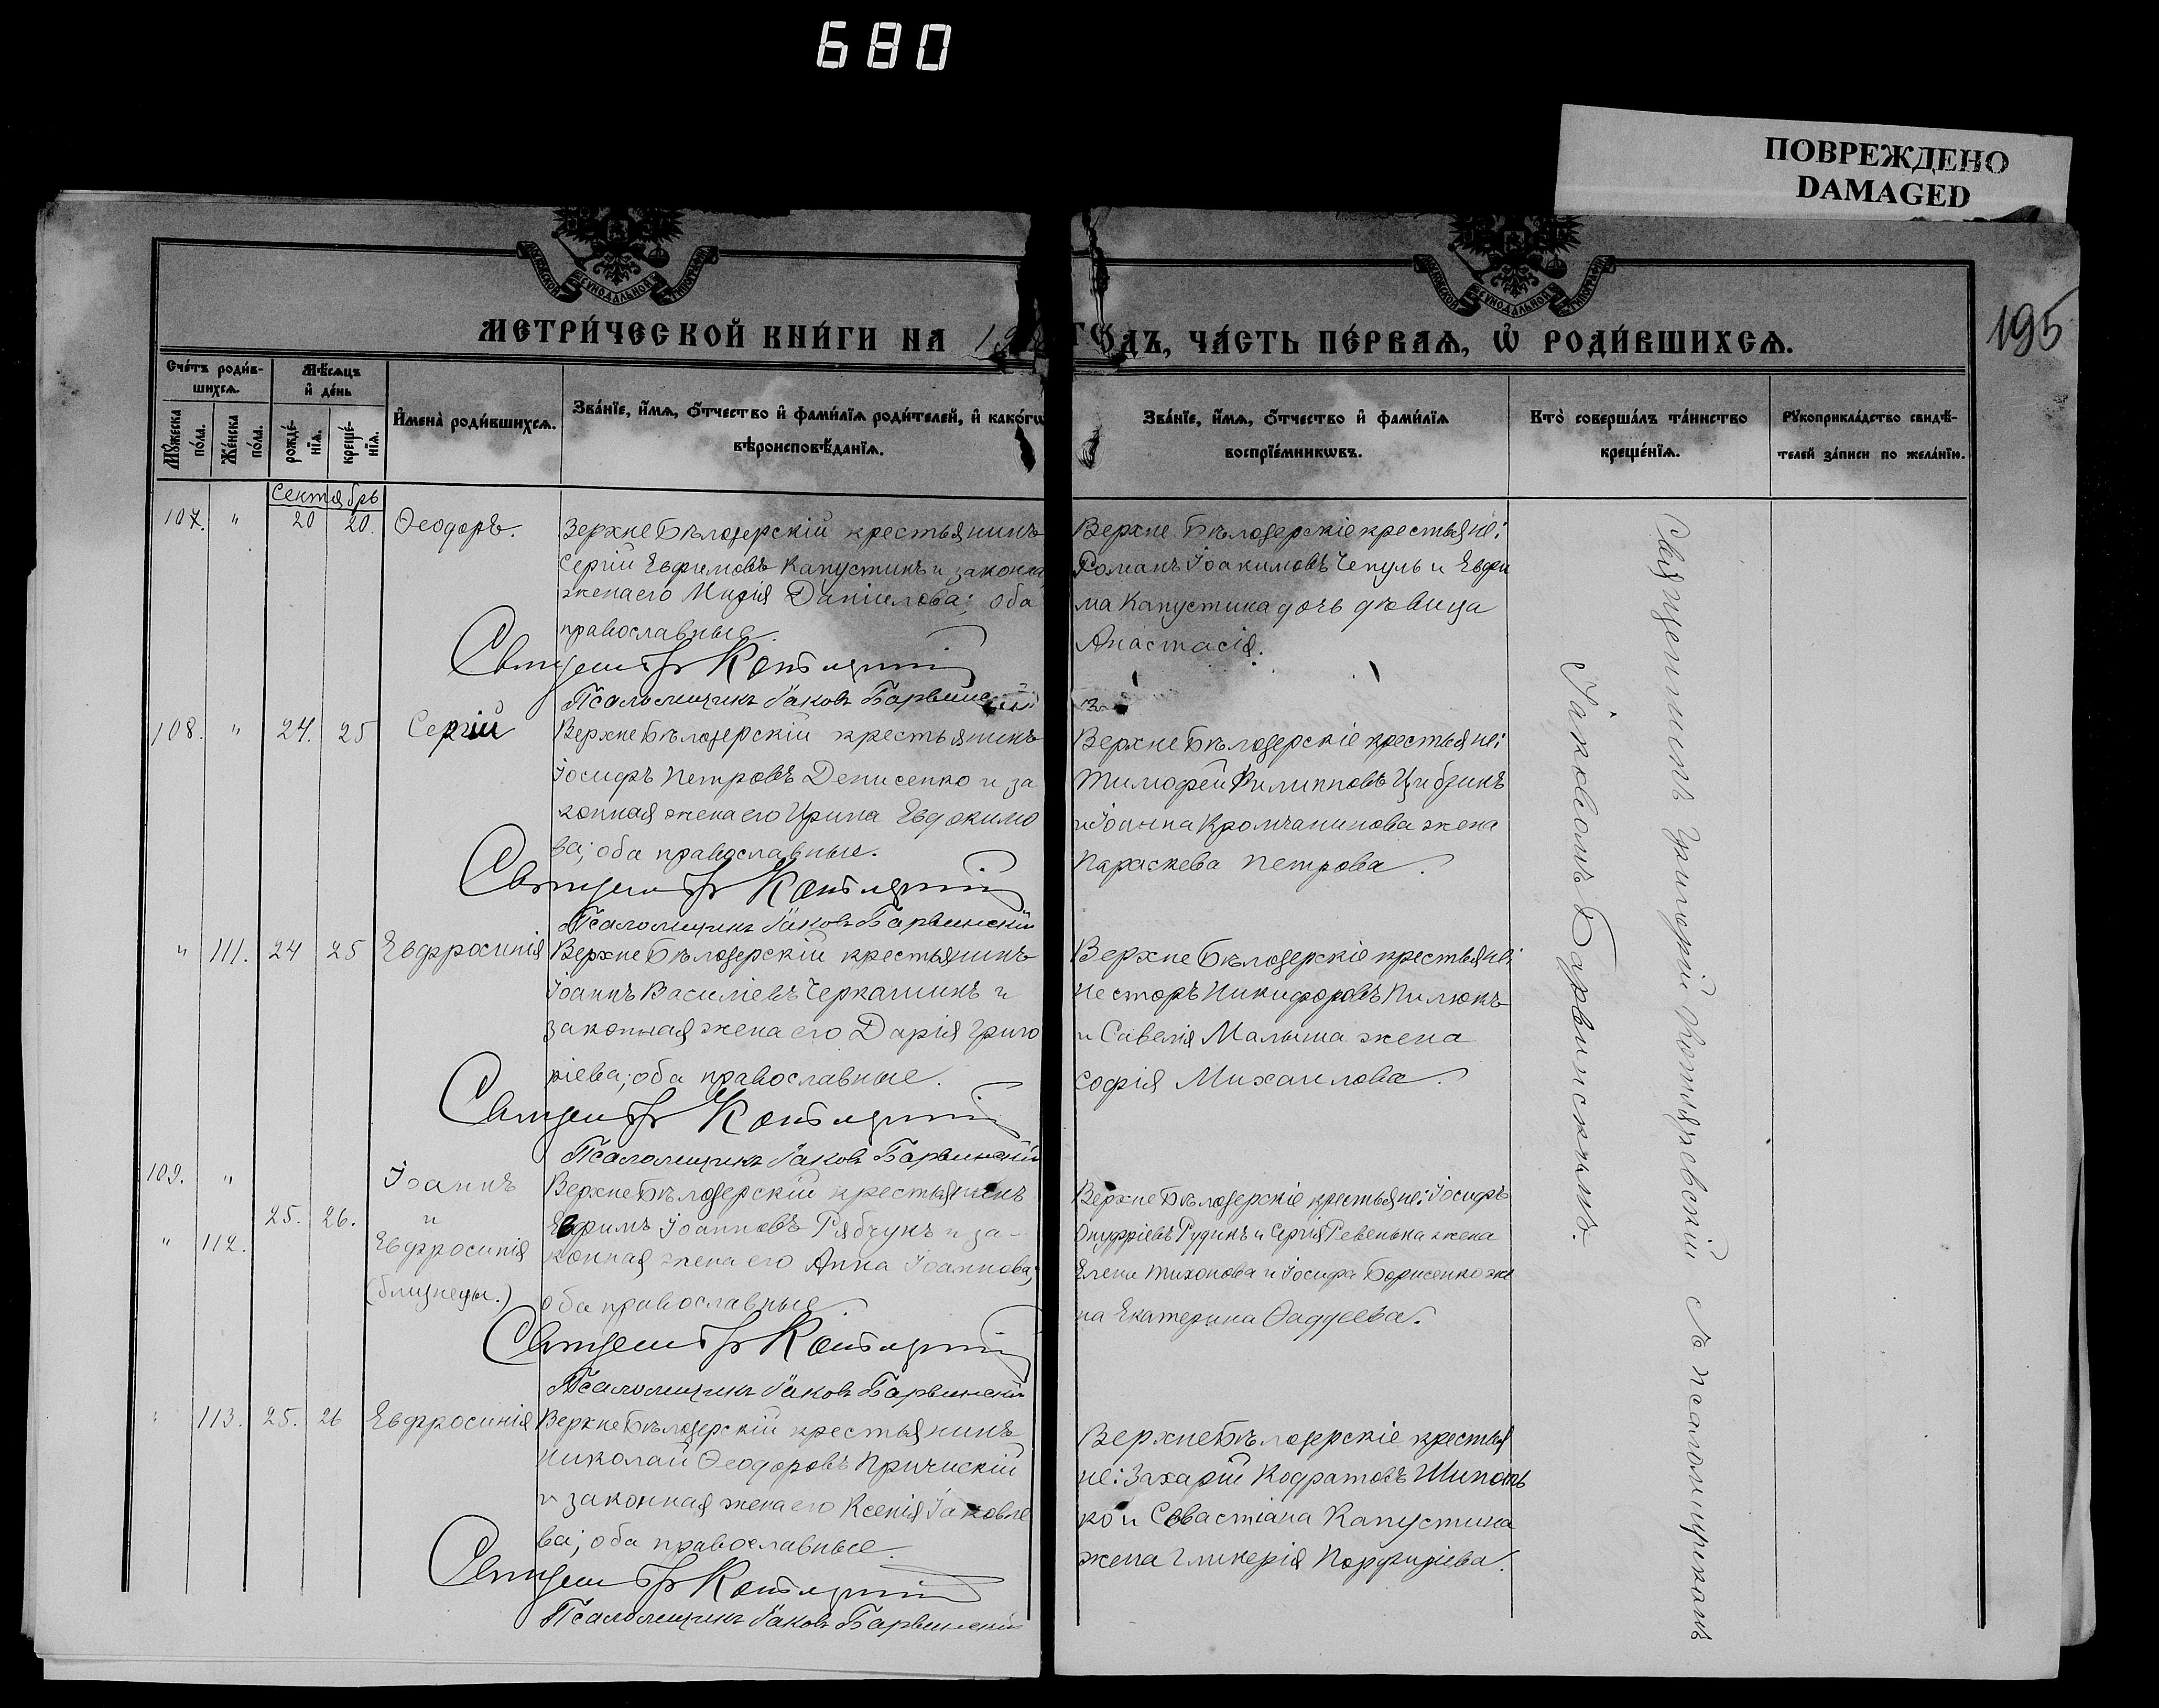 680
ПОВРЕЖДЕНО
DAMAGED
195
МЕТРИ́ЧЕСКОЙ КНИ́ГИ НА 19
ГОДЪ, ЧА́СТЬ ПЕ́РВАѦ, Ѡ҆ РОДИ́ВШИХСѦ.
Сче́тъ роди́в-
шихсѧ.
Мѣсѧцъ
и҆ де́нь
Мꙋ́жеска
по́ла.
Же́нска
по́ла.
рожде́-
нїѧ.
креще́-
нїѧ.
И҆мена̀ роди́вшихсѧ.
Зва́нїе, и҆́мѧ, ѻ҆́тчество и҆ фами́лїѧ роди́телей, и҆ како́гѡ
вѣроисповѣ́данїѧ.
Зва́нїе, и҆́мѧ, ѻ҆́тчество и҆ фами́лїѧ
воспрїе́мникѡвъ.
Кто̀ соверша́лъ та́инство
креще́нїѧ.
Рꙋкоприкла́дство свидѣ́-
телей за́писи по жела́нїю.
Сентябрь
107. " 20 20. Ѳеодоръ.
Верхне Бѣлозерскій крестьянинъ
Сергій Евфимовъ Капустинъ и законная
жена его Марія Даніилова; оба
православные.
Священникъ
Псаломщикъ Іаковъ Барвинскій
Верхне Бѣлозерскіе крестьяне:
Романъ Іоакимовъ Чепуль и Евфи
ма Капустина дочь дѣвица
Анастасія.
108. " 24. 25 Сергій
Верхне Бѣлозерскій крестьянинъ
Іосифъ Петровъ Денисенко и за
конная жена его Ирина Евдокимо
ва; оба православные.
Священникъ
Псаломщикъ Іаковъ Барвинскій
Верхне Бѣлозерскіе крестьяне:
Тимофей Филипповъ Цибринъ
и Іоанна Кромчанинова жена
Параскева Петрова.
" 111. 24 25 Евфросинія
Верхне Бѣлозерскій крестьянинъ
Іоаннъ Василіевъ Черкашинъ и
законная жена его Дарія Григо
ріева; оба православные.
Священникъ
Псаломщикъ Іаковъ Барвинскій
Верхне Бѣлозерскіе крестьяне:
Несторъ Никифоровъ Пилюкъ
и Савелія Малыша жена
Софія Михаилова.
109. " Іоаннъ
25. 26. и
" 112. Евфросинія
(близнецы.)
Верхне Бѣлозерскій крестьянинъ
Ефримъ Іоанновъ Рябчукъ и за-
конная жена его Анна Іоаннова;
оба православные.
Священникъ
Псаломщикъ Іаковъ Барвинскій
Верхне Бѣлозерскіе крестьяне: Іосифъ
Онуфріевъ Рудикъ и Сергія Ревенька жена
Елена Тихонова и Іосифа Борисенко же
на Екатерина Ѳаддеева.
" 113. 25. 26 Евфросинія
Верхне Бѣлозерскій крестьянинъ
Николай Ѳеодоровъ
и законная жена его Ксенія Іаковле
ва; оба православные.
Священникъ
Псаломщикъ Іаковъ Барвинскій
Верхне Бѣлозерскіе крестья
не: Захарій Кодратовъ Шипоть
ко и Севастіана Капустина
жена Гликерія Порфиріева.
Священникъ Григорій съ псаломщикомъ
Іаковомъ Барвинскимъ.